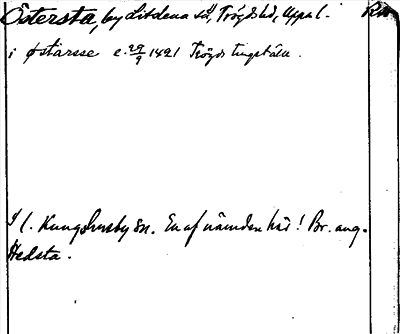 Östersta, by Litslena sn, Trögds hd, Uppsl.
i østarsse c. 29/9 1421 Trögds tingställe.
I l. Kungshusby sn. En af nämden här! Br. ang.
Hedsta.